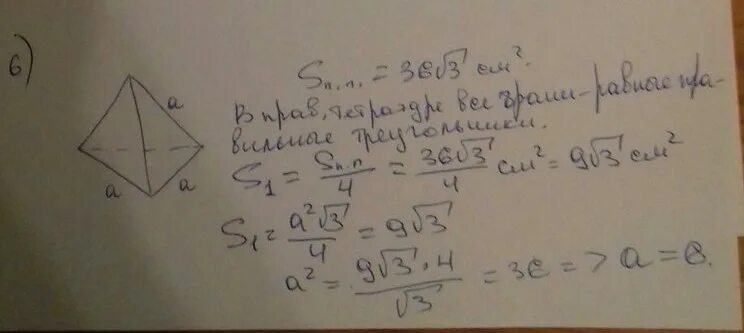 6)
Sп.п. = 36√3 см².
В прав. тетраэдре все грани - равные пра-
вильные треугольники.
S₁ = Sп.п/4 = 36√3/4 см² = 9√3 см²
S₁ = a²√3/4 = 9√3
a² = 9√3·4/√3 = 36 => a = 6.
a
a
a